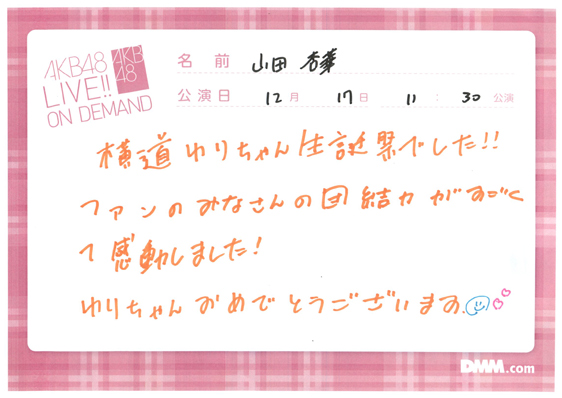 AKB48
LIVE!!
ON DEMAND
AKB
48
名前 山田 杏華
公演日 12月 17日 11:30 公演
横道ゆりちゃん生誕祭でした!!
ファンのみなさんの団結力がすごく
て感動しました!
ゆりちゃんおめでとうございます。
DMM.com